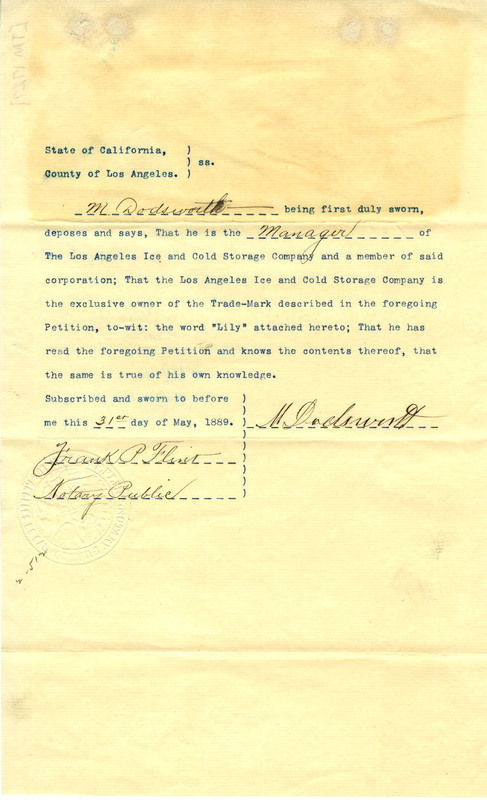 State of California, )
) ss.
County of Los Angeles. )
M Dodsworth being first duly sworn,
deposes and says, That he is the Manager of
The Los Angeles Ice and Cold Storage Company and a member of said
corporation; That the Los Angeles Ice and Cold Storage Company is
the exclusive owner of the Trade-Mark described in the foregoing
Petition, to-wit: the word "Lily" attached hereto; That he has
read the foregoing Petition and knows the contents thereof, that
the same is true of his own knowledge.
Subscribed and sworn to before )
me this 31st day of May, 1889. ) M Dodsworth
Frank P Flint )
Notary Public )